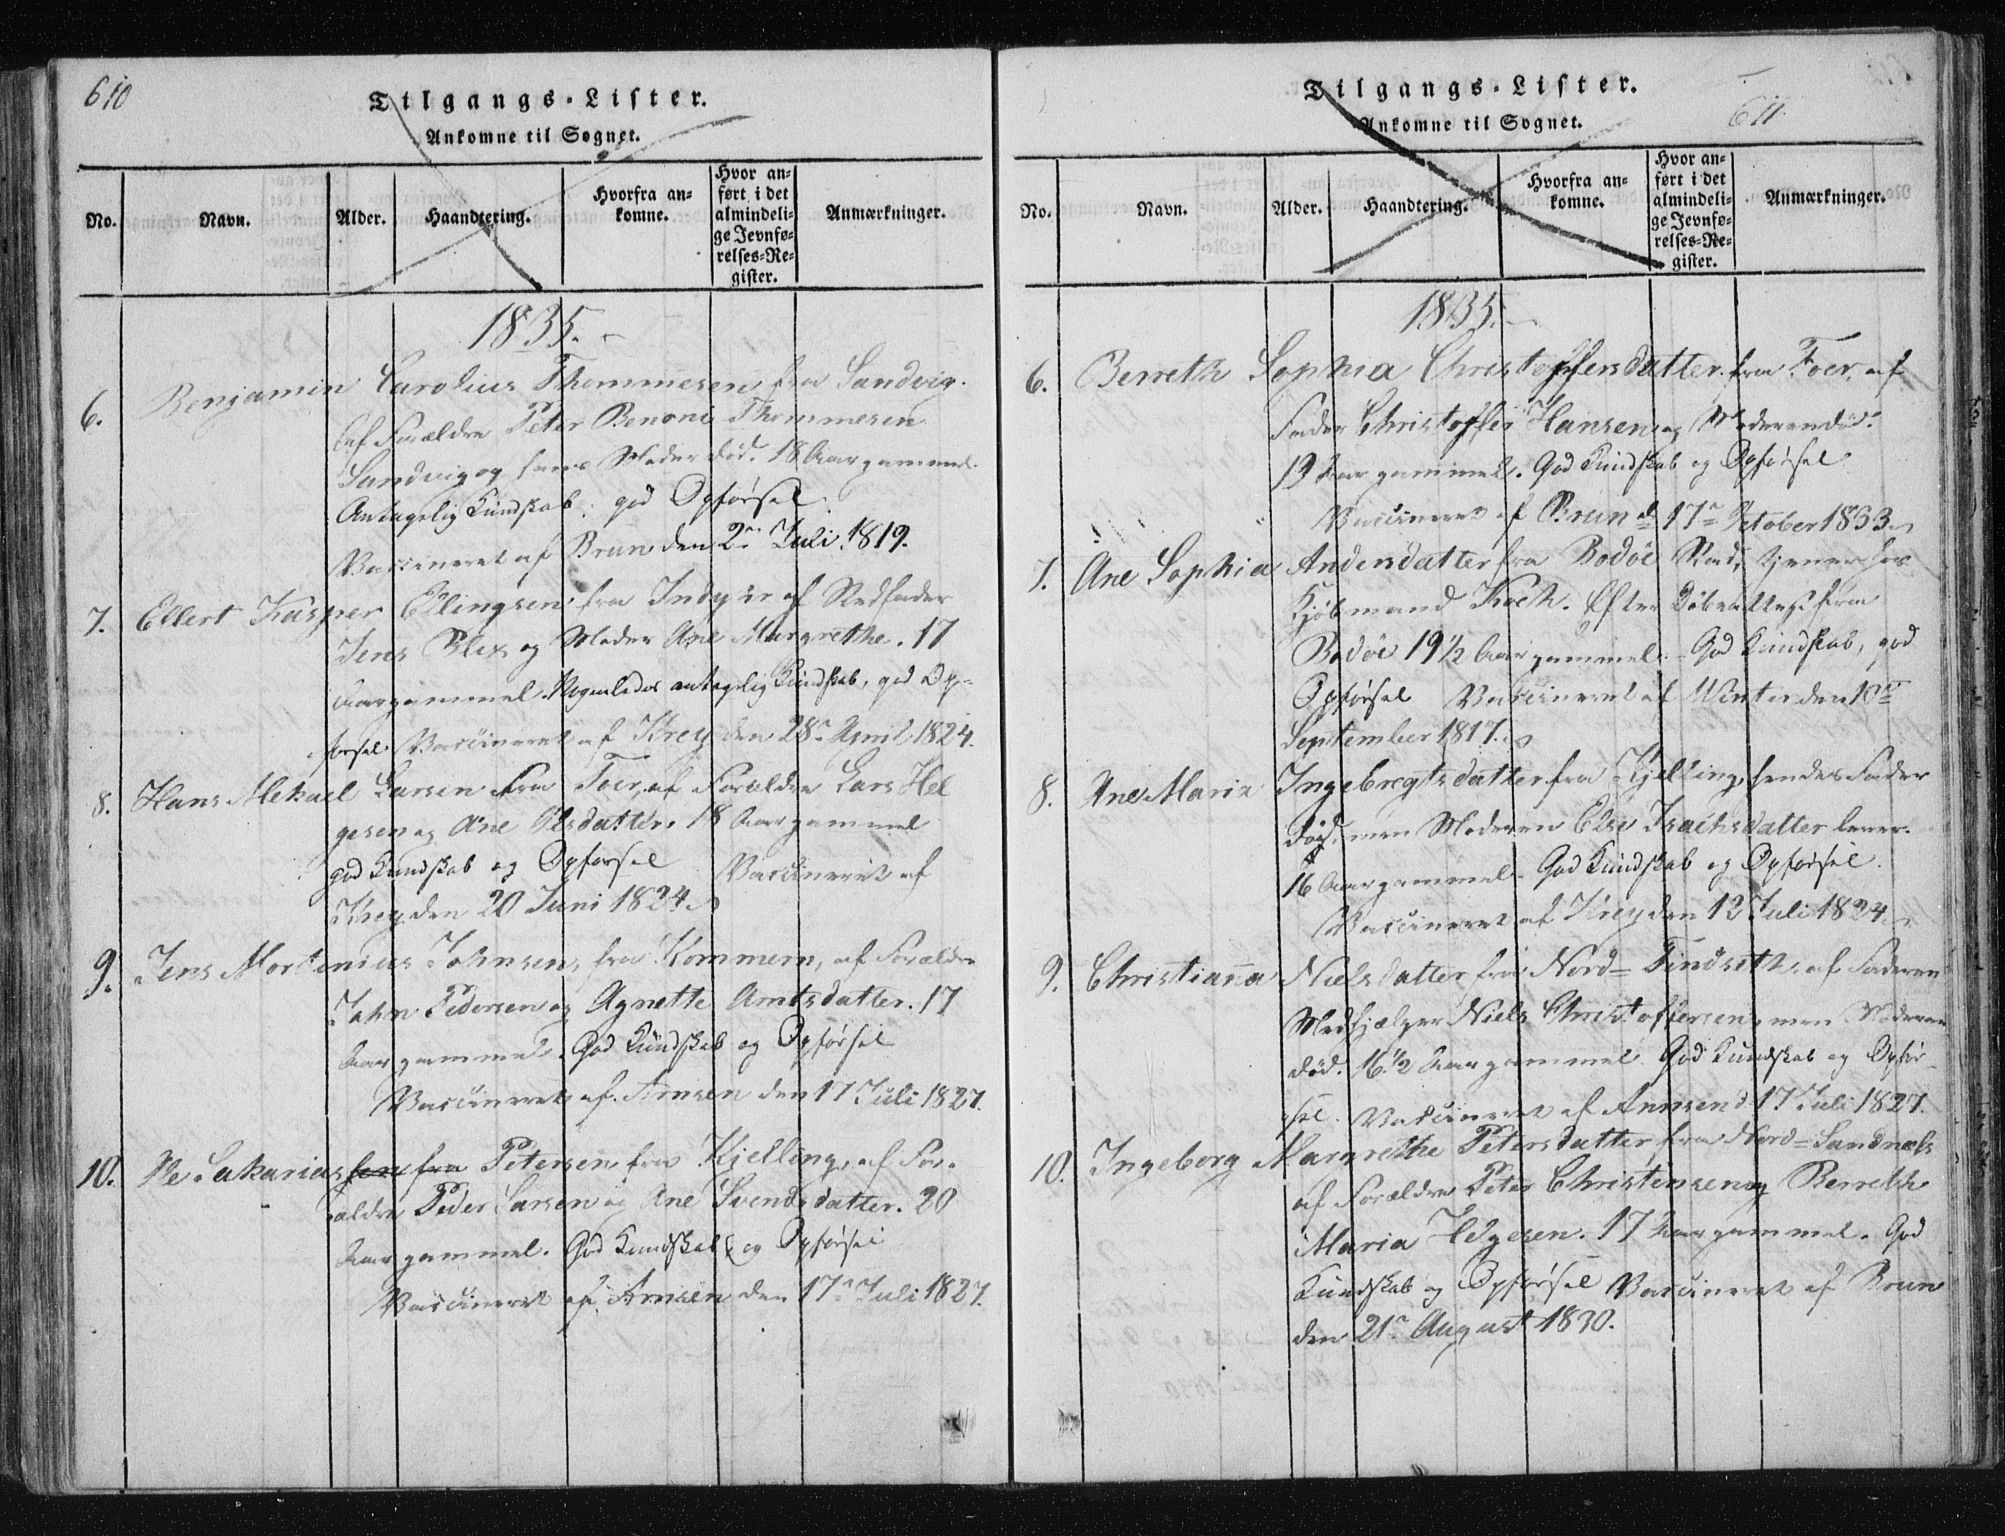 610
Tilgangs-Lister.
Ankomne til Sognet.
No.
Navn.
Alder.
Haandtering.
Hvorfra an-
komne.
Hvor an-
ført i det
almindeli-
ge Jevnfø-
relses-Re-
gister.
Anmærkninger.
1835.
6. Benjamin Carolius Thommesen fra Sandvig.
af Forældre Peter Benoni Thommesen
Sandvig og hans Moder død. 18 Aar gammel.
Antagelig Kundskab, god Opførsel.
Vaccineret af Brun den 2n Juli 1819.
7. Ellert Kasper Ellingsen fra Indyr af Stedfader
Jens Blix og Moder Ane Margrethe. 17
Aar gammel. Nogenledes antagelig Kundskab, god Op-
førsel Vaccineret af Krey den 28n April 1824.
8. Hans Mekael Larsen fra Foer, af Forældre Lars Hel
gesen og Ane Olsdatter. 18 Aar gammel
god Kundskab og Opførsel Vaccineret af
Krey den 20 Juni 1824.
9. Jens Mortenius Johnsen, fra Kommern, af Forældre
John Pedersen og Agnette Amtsdatter. 17
Aar gammel. God Kundskab og Opførsel
Vaccineret af Arnsen den 17 Juli 1827.
10. Ole Sakarias sen fra Petersen fra Kjelling, af For-
ældre Peder Larsen og Ane Svendsdatter. 20
Aar gammel. God Kundskab og Opførsel
Vaccineret af Arnsen den 17n Juli 1827.
611.
Tilgangs-Lister.
Ankomne til Sognet.
No.
Navn.
Alder.
Haandtering.
Hvorfra an-
komne.
Hvor an-
ført i det
almindeli-
ge Jevnfø-
relses-Re-
gister.
Anmærkninger.
1835.
6. Berreth Sophia Christoffersdatter fra Foer, af
Fader Christoffer Hansen og Moderen død.
19 Aar gammel. God Kundskab og Opførsel
Vaccineret af Brun d. 17n October 1833.
7. Ane Sophia Andersdatter fra Bodøe Stad, tjener hos
Kjøbmand Koch. Efter Døbeattest fra
Bodøe 19 1/2 Aar gammel. God Kundskab, god
Opførsel Vaccineret af Winter den 10n
September 1817.
8. Ane Maria Ingebregtsdatter fra Kjelling, hendes Fader
død, men Moderen Else Isachsdatter lever.
16 Aar gammel. God Kundskab og Opførsel.
Vaccineret af Krey den 12 Juli 1824.
9. Christiana Nielsdatter fra Nord-Findseth, af Faderen
Medhjælper Niels Christoffersen, men Moderen
død. 16 1/2 Aar gammel God Kundskab og Opfør-
sel. Vaccineret af Arnsen d. 17 Juli 1827.
10. Ingeborg Margrethe Petersdatter fra Nord-Sandnæs
af Forældre Peter Christensen og Berreth
Maria Helgesen. 17 Aar gammel. God
Kundskab og Opførsel Vaccineret af Brun
den 21n August 1830.